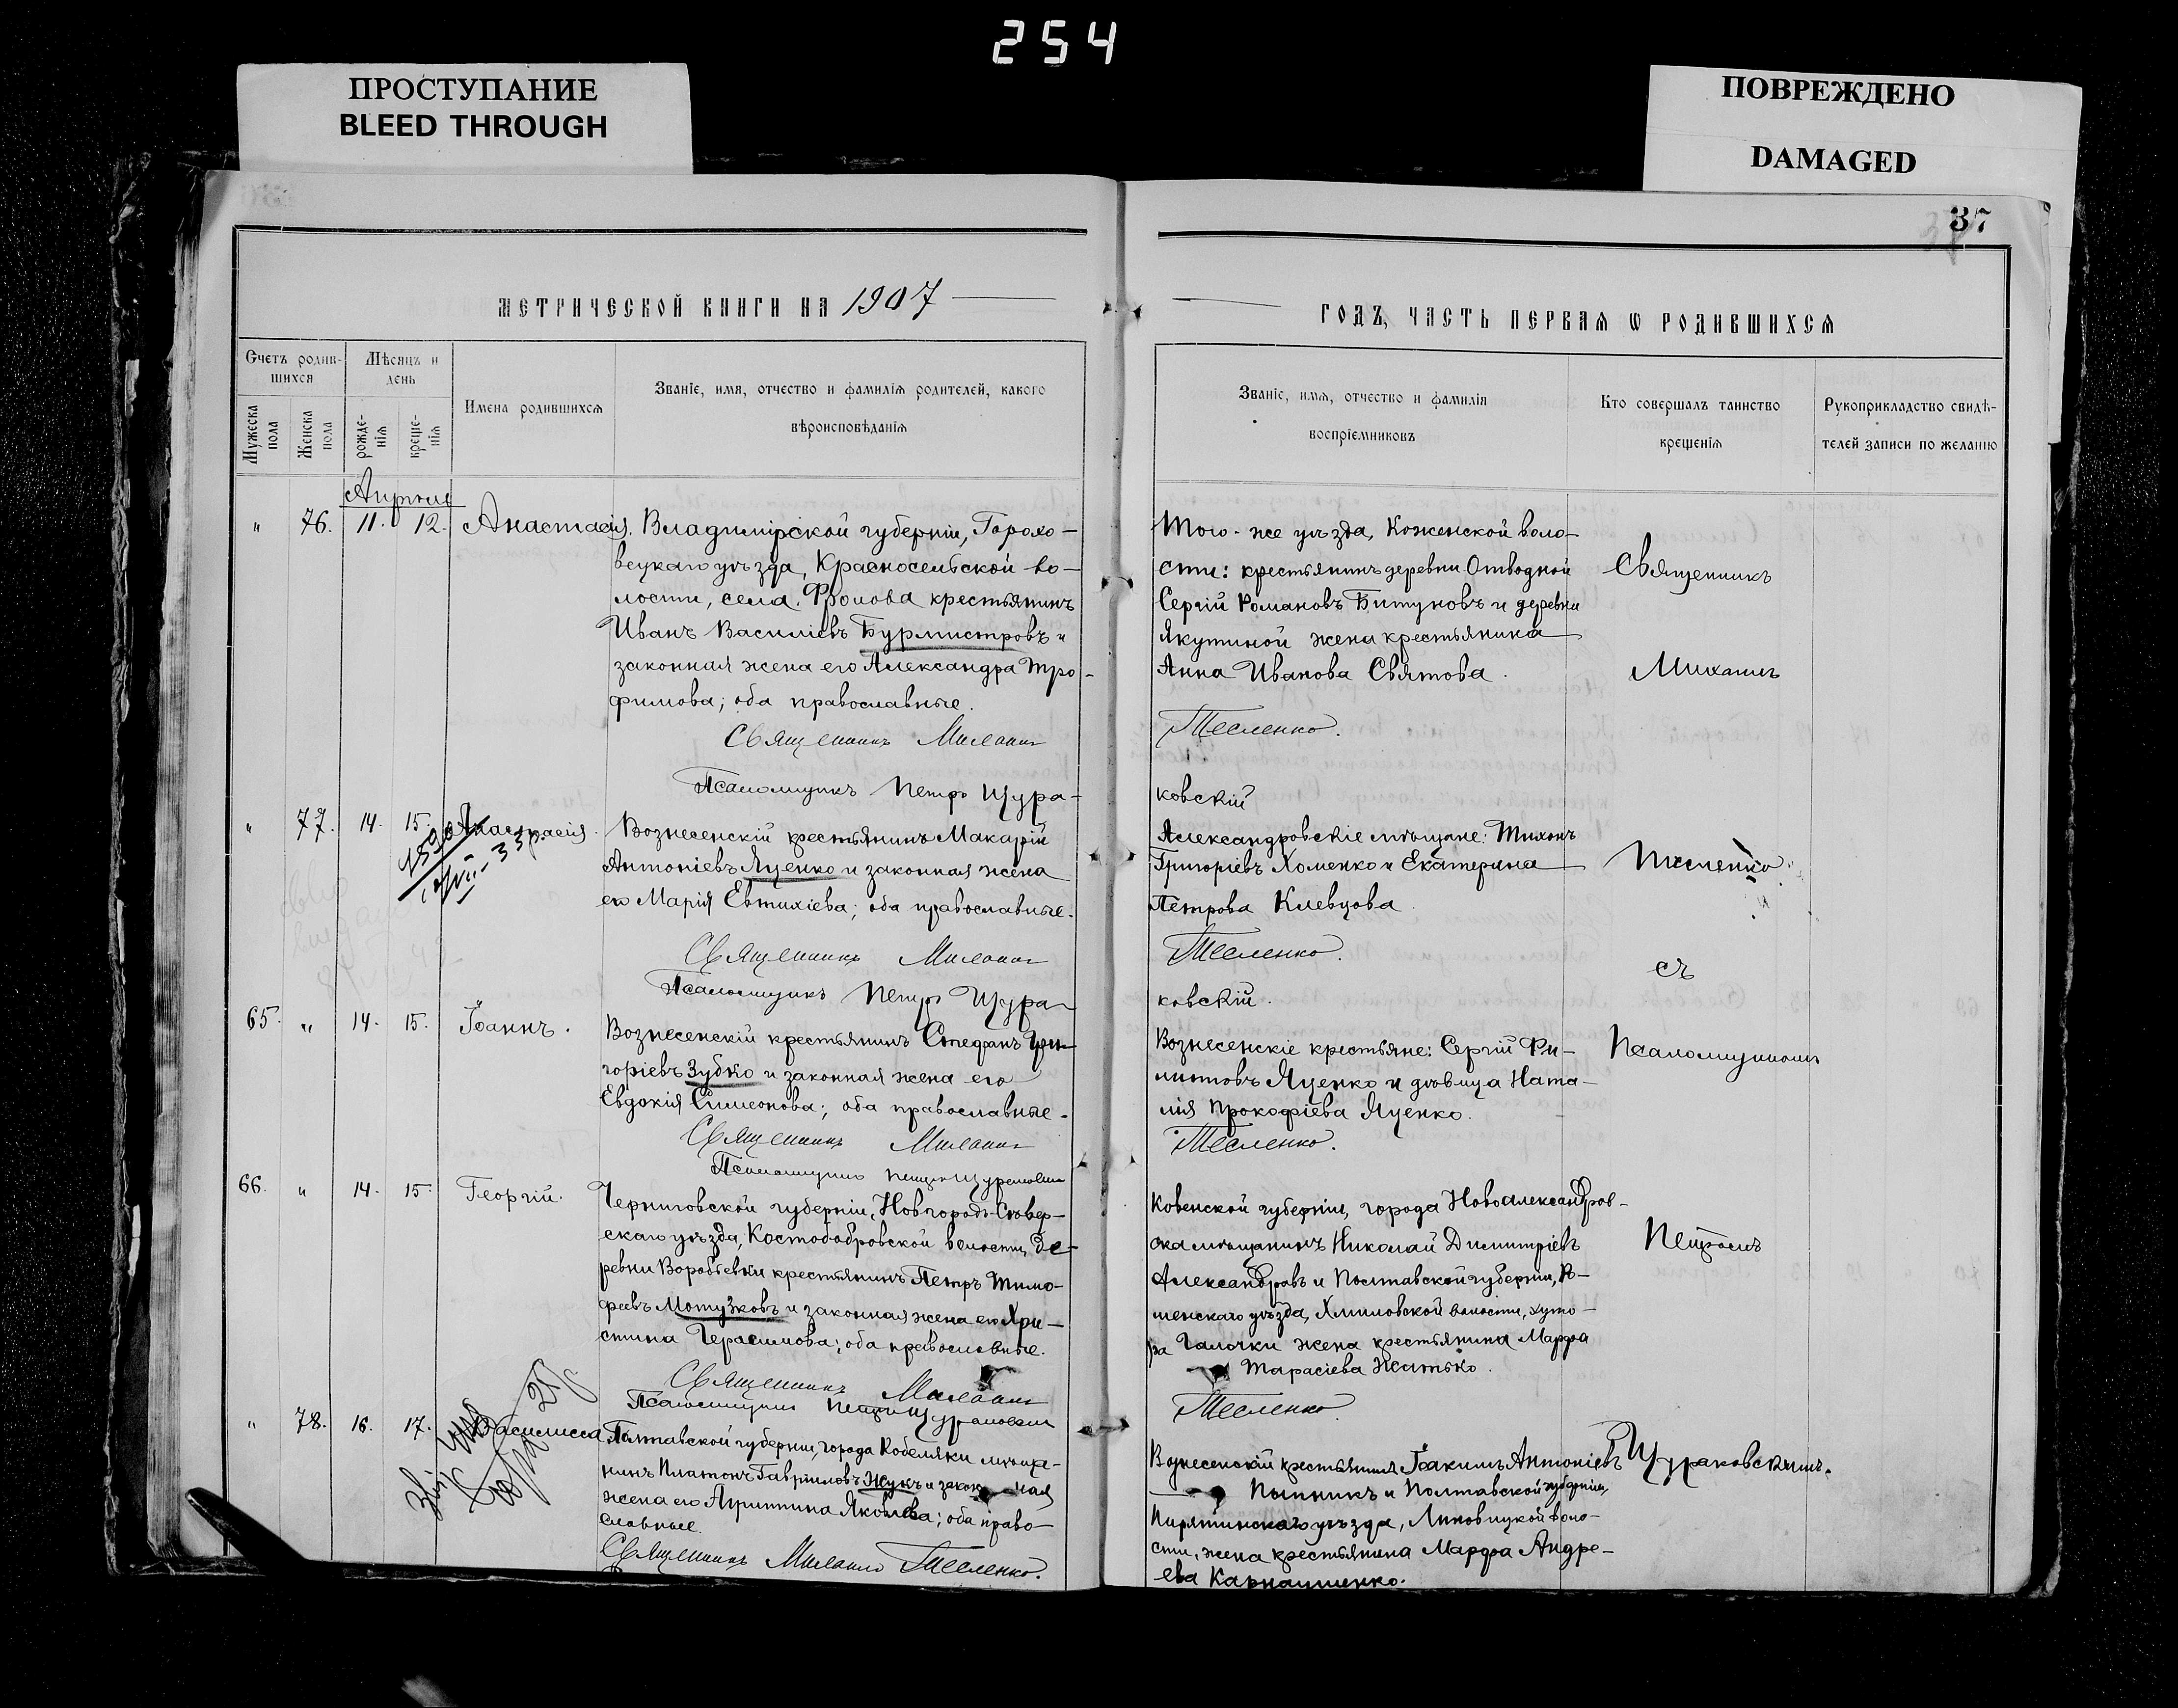 254
ПРОСТУПАНИЕ
BLEED THROUGH
ПОВРЕЖДЕНО
DAMAGED
37
МЕТРИЧЕСКОЙ КНИГИ НА 1907
ГОДЪ, ЧАСТЬ ПЕРВАЯ Ѡ РОДИВШИХСЯ
Счетъ родив-
шихся
Мужеска
пола
Женска
пола
Мѣсяцъ и
день
рожде-
нія
креще-
нія
Имена родившихся
Званіе, имя, отчество и фамилія родителей, какого
вѣроисповѣданія
Званіе, имя, отчество и фамилія
воспріемниковъ
Кто совершалъ таинство
крещенія
Рукоприкладство свидѣ-
телей записи по желанію
Апрѣль
" 76. 11. 12. Анастасія.
Владимірской губерніи, Горохо-
вецкаго уѣзда, Красносельской во-
лости, села Фролова крестьянинъ
Иванъ Василіевъ Бурмистровъ и
законная жена его Александра Тро-
фимова; оба православные.
Священникъ Михаилъ
Псаломщикъ Петръ Щура-
Того-же уѣзда, Коженской воло-
сти: крестьянинъ деревни Отводной
Сергій Романовъ Битуновъ и деревни
Якутиной жена крестьянина
Анна Иванова Святова.
Тесленко.
ковскій
Священникъ
Михаилъ
" 77. 14. 15. Анастасія.
Вознесенскій крестьянинъ Макарій
Антоніевъ Яценко и законная жена
его Марія Евтихіева; оба православные.
Священникъ Михаилъ
Псаломщикъ Петръ Щура-
Александровскіе мѣщане: Тихонъ
Григоріевъ Хоменко и Екатерина
Петрова Клевцова.
Тесленко.
ковскій.
Тесленко
съ
65. " 14. 15. Іоаннъ.
Вознесенскій крестьянинъ Стефанъ Гри-
горіевъ Зубко и законная жена его
Евдокія Симеонова; оба православные.
Священникъ Михаилъ
Псаломщикъ Петръ Щураковскій
Вознесенскіе крестьяне: Сергій Фи-
липовъ Яценко и дѣвица Ната-
лія Прокофіева Яценко.
Тесленко.
Псаломщикомъ
66. " 14. 15. Георгій.
Черниговской губерніи, Новгородъ-Сѣвер-
скаго уѣзда, Костобобровской волости, де-
ревни Воробіевки крестьянинъ Петръ Тимо-
феевъ Мотузковъ и законная жена его Хри-
стина Герасимова; оба православные.
Священникъ Михаилъ
Псаломщикъ Петръ Щураковскій
Ковенской губерніи, города Новоалександров-
ска мѣщанинъ Николай Димитріевъ
Александровъ и Полтавской губерніи, Ро-
менскаго уѣзда, Хмиловской волости, хуто-
ра Галочки жена крестьянина Марфа
Тарасіева
Тесленко
Петромъ
" 78. 16. 17. Василисса
Полтавской губерніи, города Кобеляки мѣща-
нинъ Платонъ Гавріиловъ Жукъ и законная
жена его Агриппина Яковлева; оба право-
славные.
Священникъ Михаилъ Тесленко.
Вознесенскій крестьянинъ Іоакимъ Антоніевъ
и Полтавской губерніи,
Пирятинскаго уѣзда, Линовицкой воло-
сти, жена крестьянина Марфа Андре-
ева Карнаушенко.
Щураковскимъ.